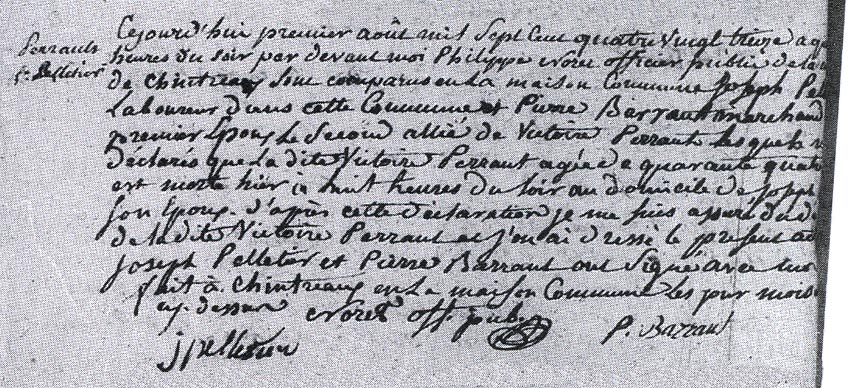 Perrault
f.e Pelletier
Cejourd'hui premier août mil Sept Cent quatre vingt treize a qu
heures du soir par devant moi Philippe officier public de la
de Chintreaux Sont comparus en La maison Commune Joseph Pel
Laboureur dans cette Commune et Pierre Barraut marchand
premier Epoux Le Second allié de Victoire Perraut lesquels
déclarés que La dite Victoire Perraut agéé de quarante quatr
est morte hier à huit heures du Soir au domicile de Joseph
Son Epoux. D'après cette déclaration je me suis assuré du d
de la dite Victoire Perraut et j'en ai dressé le present ac
Joseph Pelletier et Pierre Barraut ont Signé avec moi
fait à Chintreaux en La maison Commune Les jour mois
cy. dessus off. pub.
P. Barraut
j pelletier